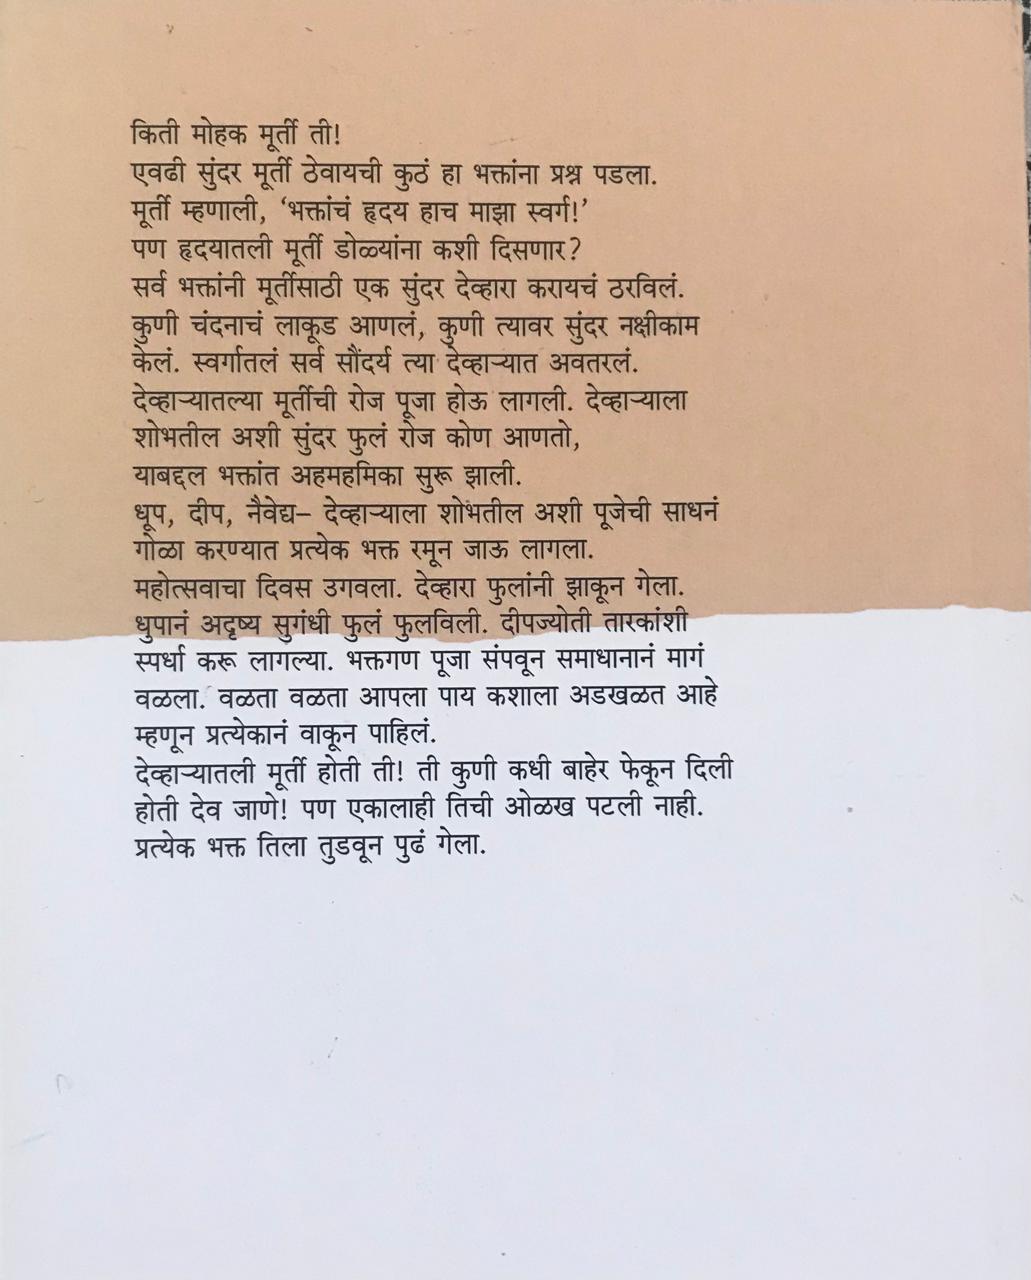 किती मोहक मूर्ती ती!
एवढी सुंदर मूर्ती ठेवायची कुठं हा भक्तांना प्रश्न पडला.
मूर्ती म्हणाली, ‘भक्तांचं हृदय हाच माझा स्वर्ग!’
पण हृदयातली मूर्ती डोळ्यांना कशी दिसणार?
सर्व भक्तांनी मूर्तीसाठी एक सुंदर देव्हारा करायचं ठरविलं.
कुणी चंदनाचं लाकूड आणलं, कुणी त्यावर सुंदर नक्षीकाम
केलं. स्वर्गातलं सर्व सौंदर्य त्या देव्हाऱ्यात अवतरलं.
देव्हाऱ्यातल्या मूर्तीची रोज पूजा होऊ लागली. देव्हाऱ्याला
शोभतील अशी सुंदर फुलं रोज कोण आणतो,
याबद्दल भक्तांत अहमहमिका सुरू झाली.
धूप, दीप, नैवेद्य– देव्हाऱ्याला शोभतील अशी पूजेची साधनं
गोळा करण्यात प्रत्येक भक्त रमून जाऊ लागला.
महोत्सवाचा दिवस उगवला. देव्हारा फुलांनी झाकून गेला.
धुपानं अदृष्य सुगंधी फुलं फुलविली. दीपज्योती तारकांशी
स्पर्धा करू लागल्या. भक्तगण पूजा संपवून समाधानानं मागं
वळला. वळता वळता आपला पाय कशाला अडखळत आहे
म्हणून प्रत्येकानं वाकून पाहिलं.
देव्हाऱ्यातली मूर्ती होती ती! ती कुणी कधी बाहेर फेकून दिली
होती देव जाणे! पण एकालाही तिची ओळख पटली नाही.
प्रत्येक भक्त तिला तुडवून पुढं गेला.